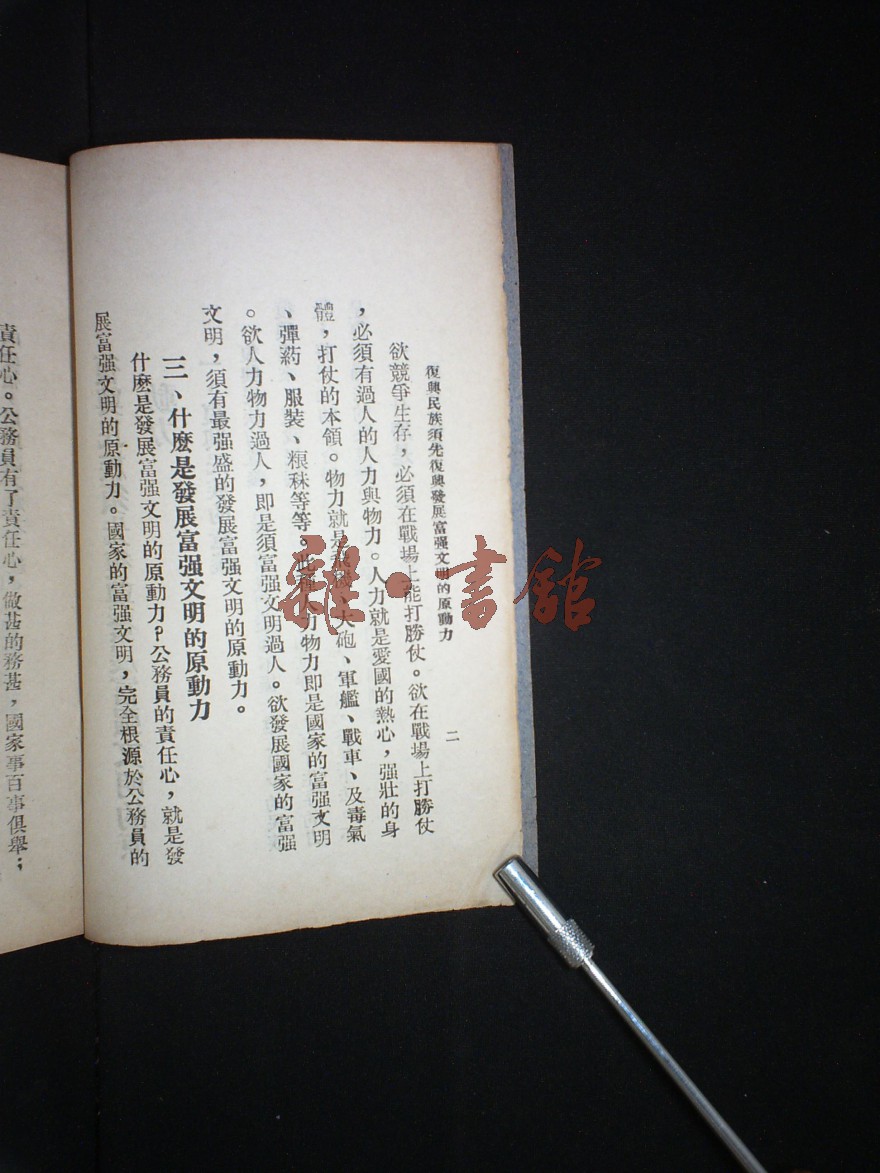 復興民族須先復興發展富强文明的原動力
二
欲競爭生存，必須在戰場上能打勝仗。欲在戰場上打勝仗
，必須有過人的人力與物力。人力就是愛國的熱心，强壯的身
體，打仗的本領。物力就是飛機、大砲、軍艦、戰車、及毒氣
、彈葯、服裝、粮秣等等。此種人力物力即是國家的富强文明
。欲人力物力過人，即是須富强文明過人。欲發展國家的富强
文明，須有最强盛的發展富强文明的原動力。
三、什麽是發展富强文明的原動力
什麽是發展富强文明的原動力？公務員的責任心，就是發
展富强文明的原動力。國家的富强文明，完全根源於公務員的
責任心。公務員有了責任心，做甚的務甚，國家事百事俱舉；
雜·書館